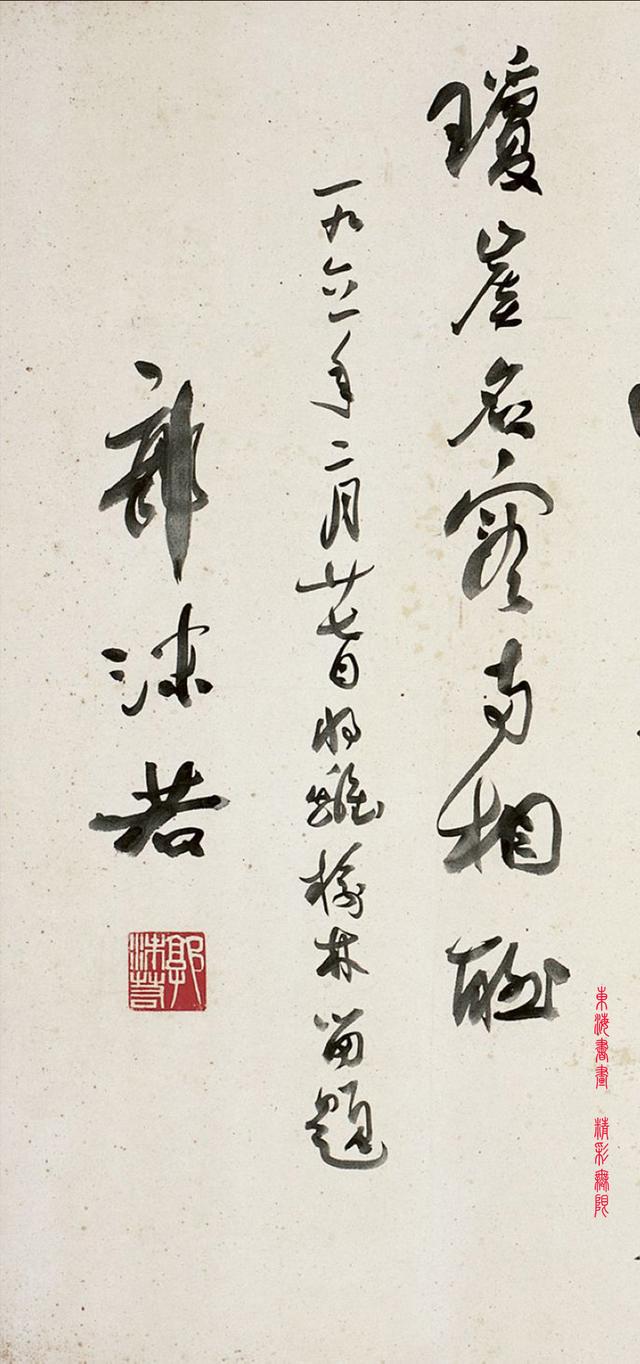 東海書畫 精彩無限
瓊崖名實两相聯
一九六一年二月廿七日将離榆林留題
郭沫若
郭沫若